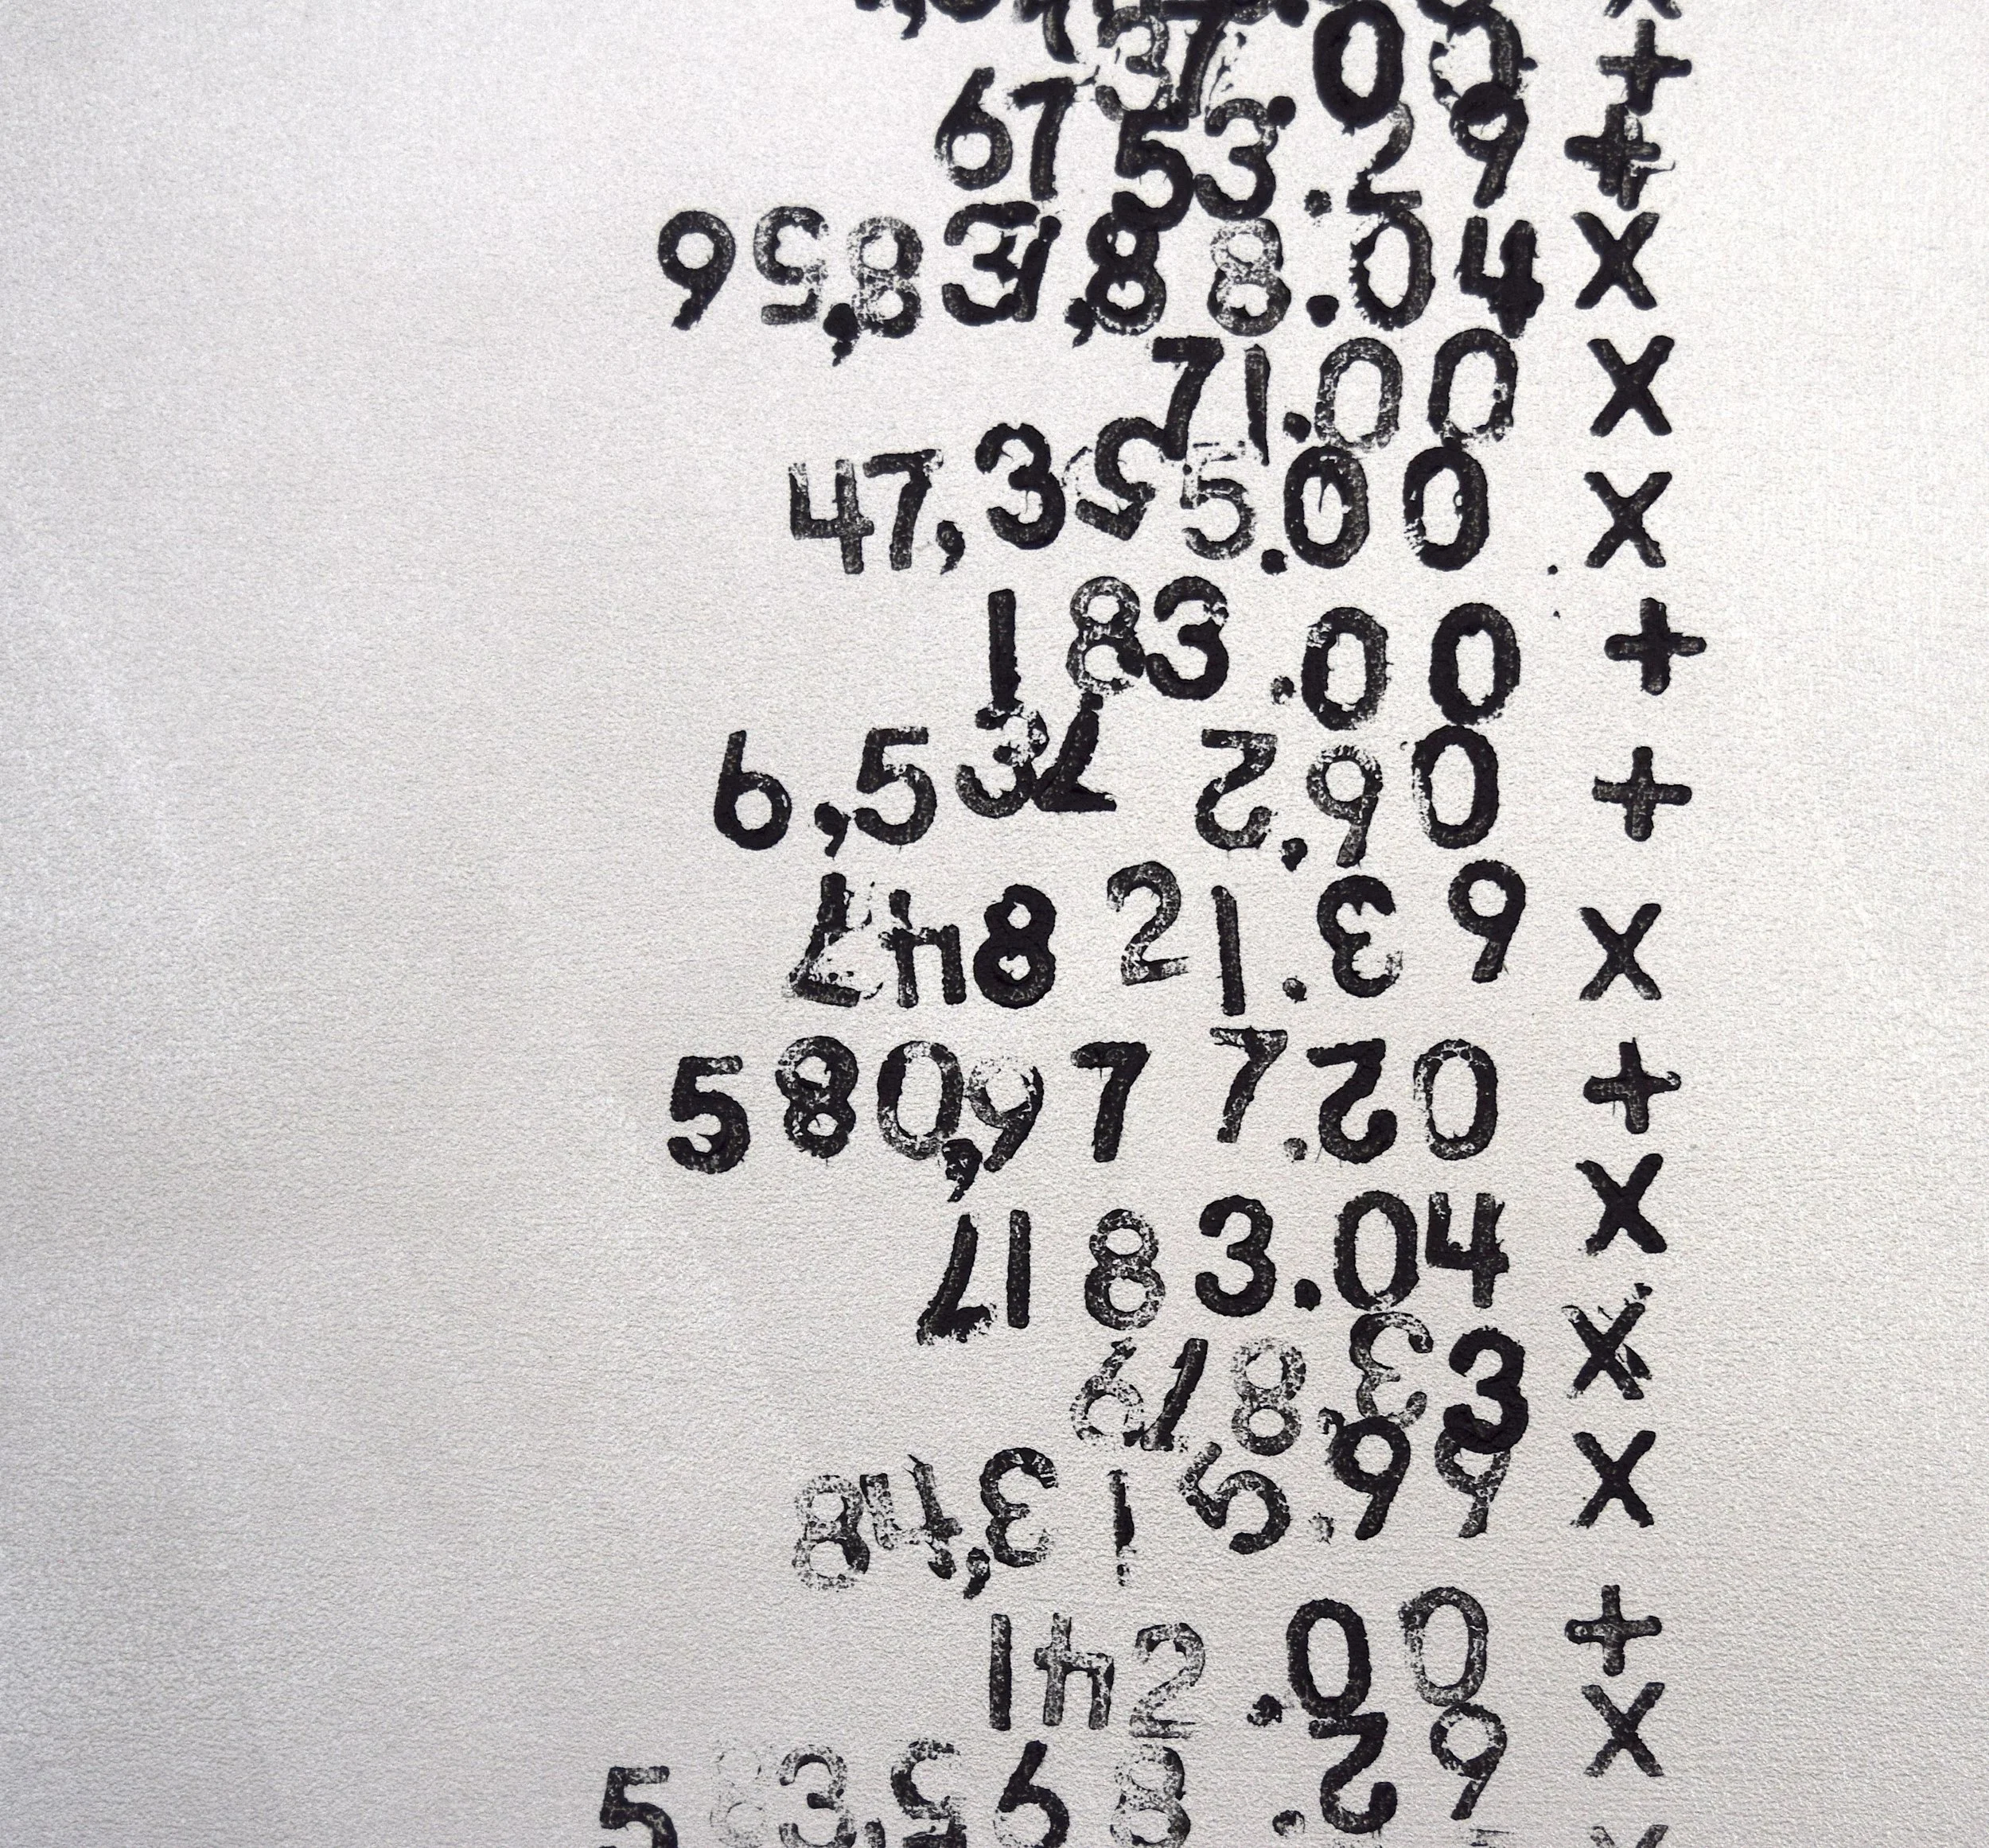 37.09 +
67 53.29 +
95,837,88.04 X
71.00 X
47,355.00 X
183.00 +
6,537 2.60 +
748 21.36 X
580,977.20 +
7183.04 X
678.33 X
84,315.99 X
142.00 +
583,568.29 X